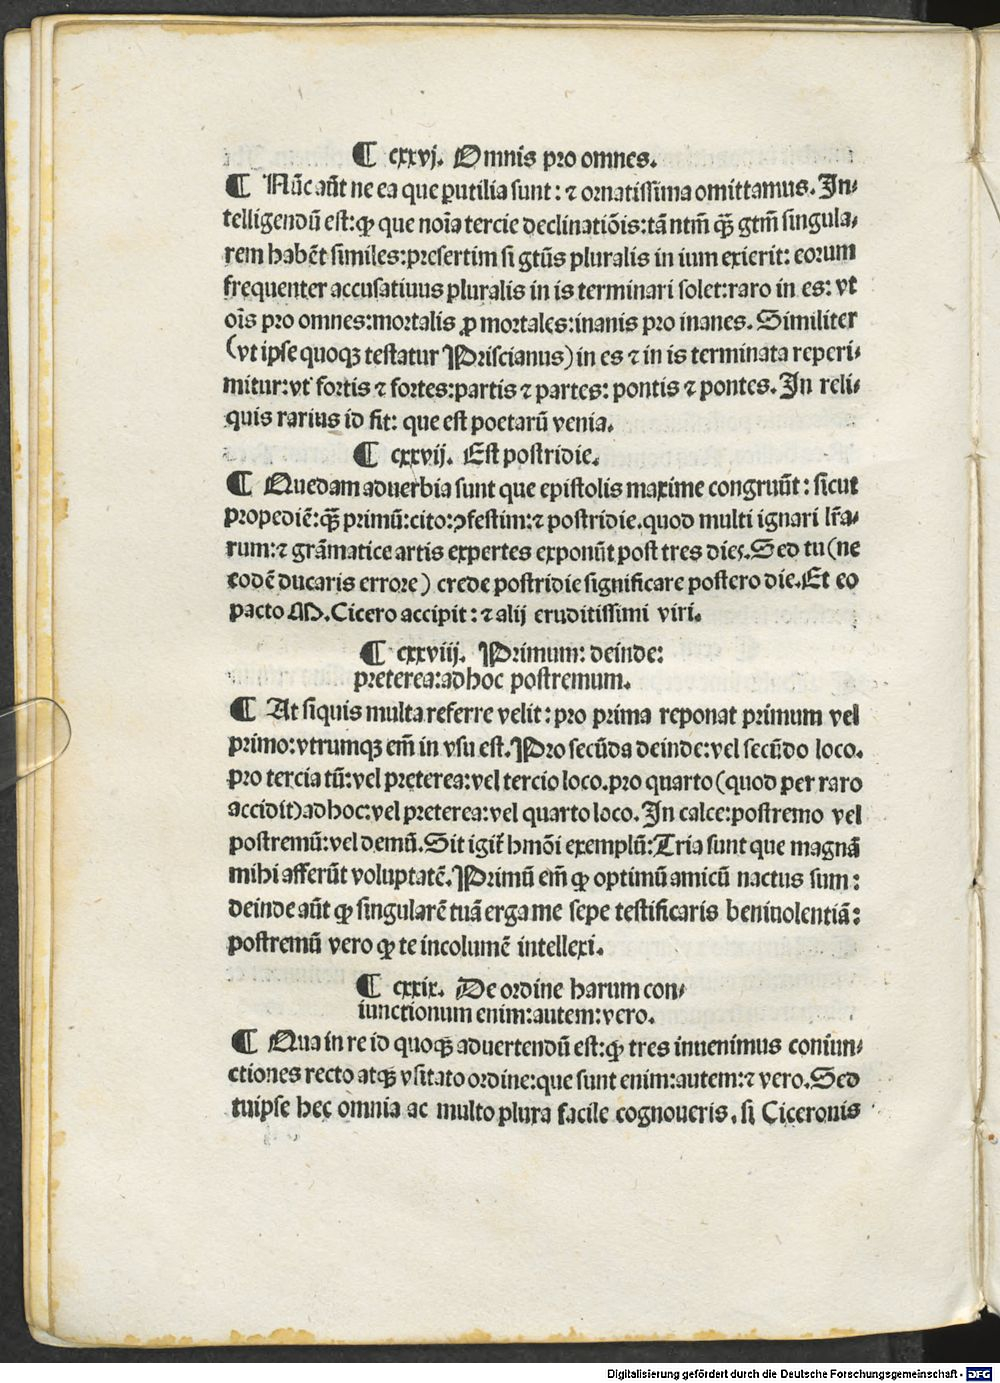 ¶ cxxvj. Omnis pro omnes.
¶ Nūc aūt ne ea que ꝑutilia sunt: ⁊ ornatissima omittamus. In⸗
telligendū est: ꝙ que noīa tercie declinatiōis: tā ntm̄ qꝫ̄ gtm̄ singula⸗
rem habēt similes: presertim si gtūs pluralis in ium exierit: eorum
frequenter accusatiuus pluralis in is terminari solet: raro in es: vt
oīs pro omnes: mortalis ꝓ mortales: inanis pro inanes. Similiter
(vt ipse quoqꝫ testatur Priscianus) in es ⁊ in is terminata reperi⸗
mitur: vt fortis ⁊ fortes: partis ⁊ partes: pontis ⁊ pontes. In reli⸗
quis rarius id fit: que est poetarū venia.
¶ cxxvij. Est postridie.
¶ Quedam aduerbia sunt que epistolis maxime congruūt: sicut
propediē: qꝫ̄ primū: cito: ꝯfestim: ⁊ postridie. quod multi ignari lr̄a⸗
rum: ⁊ grāmatice artis expertes exponūt post tres dies. Sed tu (ne
eodē ducaris errore) crede postridie significare postero die. Et eo
pacto M. Cicero accipit: ⁊ alij eruditissimi viri.
¶ cxxviij. Primum: deinde:
preterea: adhoc postremum.
¶ At siquis multa referre velit: pro prima reponat primum vel
primo: vtrumqꝫ em̄ in vsu est. Pro secūda deinde: vel secūdo loco.
pro tercia tū: vel preterea: vel tercio loco. pro quarto (quod per raro
accidit) adhoc: vel preterea: vel quarto loco. In calce: postremo vel
postremū: vel demū. Sit igit᷑ hmōi exemplū: Tria sunt que magnā
mihi afferūt voluptatē. Primū em̄ ꝙ optimū amicū nactus sum:
deinde aūt ꝙ singularē tuā erga me sepe testificaris beniuolentiā:
postremū vero ꝙ te incolumē intellexi.
¶ cxxix. De ordine harum con⸗
iunctionum enim: autem: vero.
¶ Qua in re id quoqꝫ aduertendū est: ꝙ tres inuenimus coniun⸗
ctiones recto atqꝫ vsitato ordine: que sunt enim: autem: ⁊ vero. Sed
tuipse hec omnia ac multo plura facile cognoueris, si Ciceronis
Digitalisierung gefördert durch die Deutsche Forschungsgemeinschaft - DFG